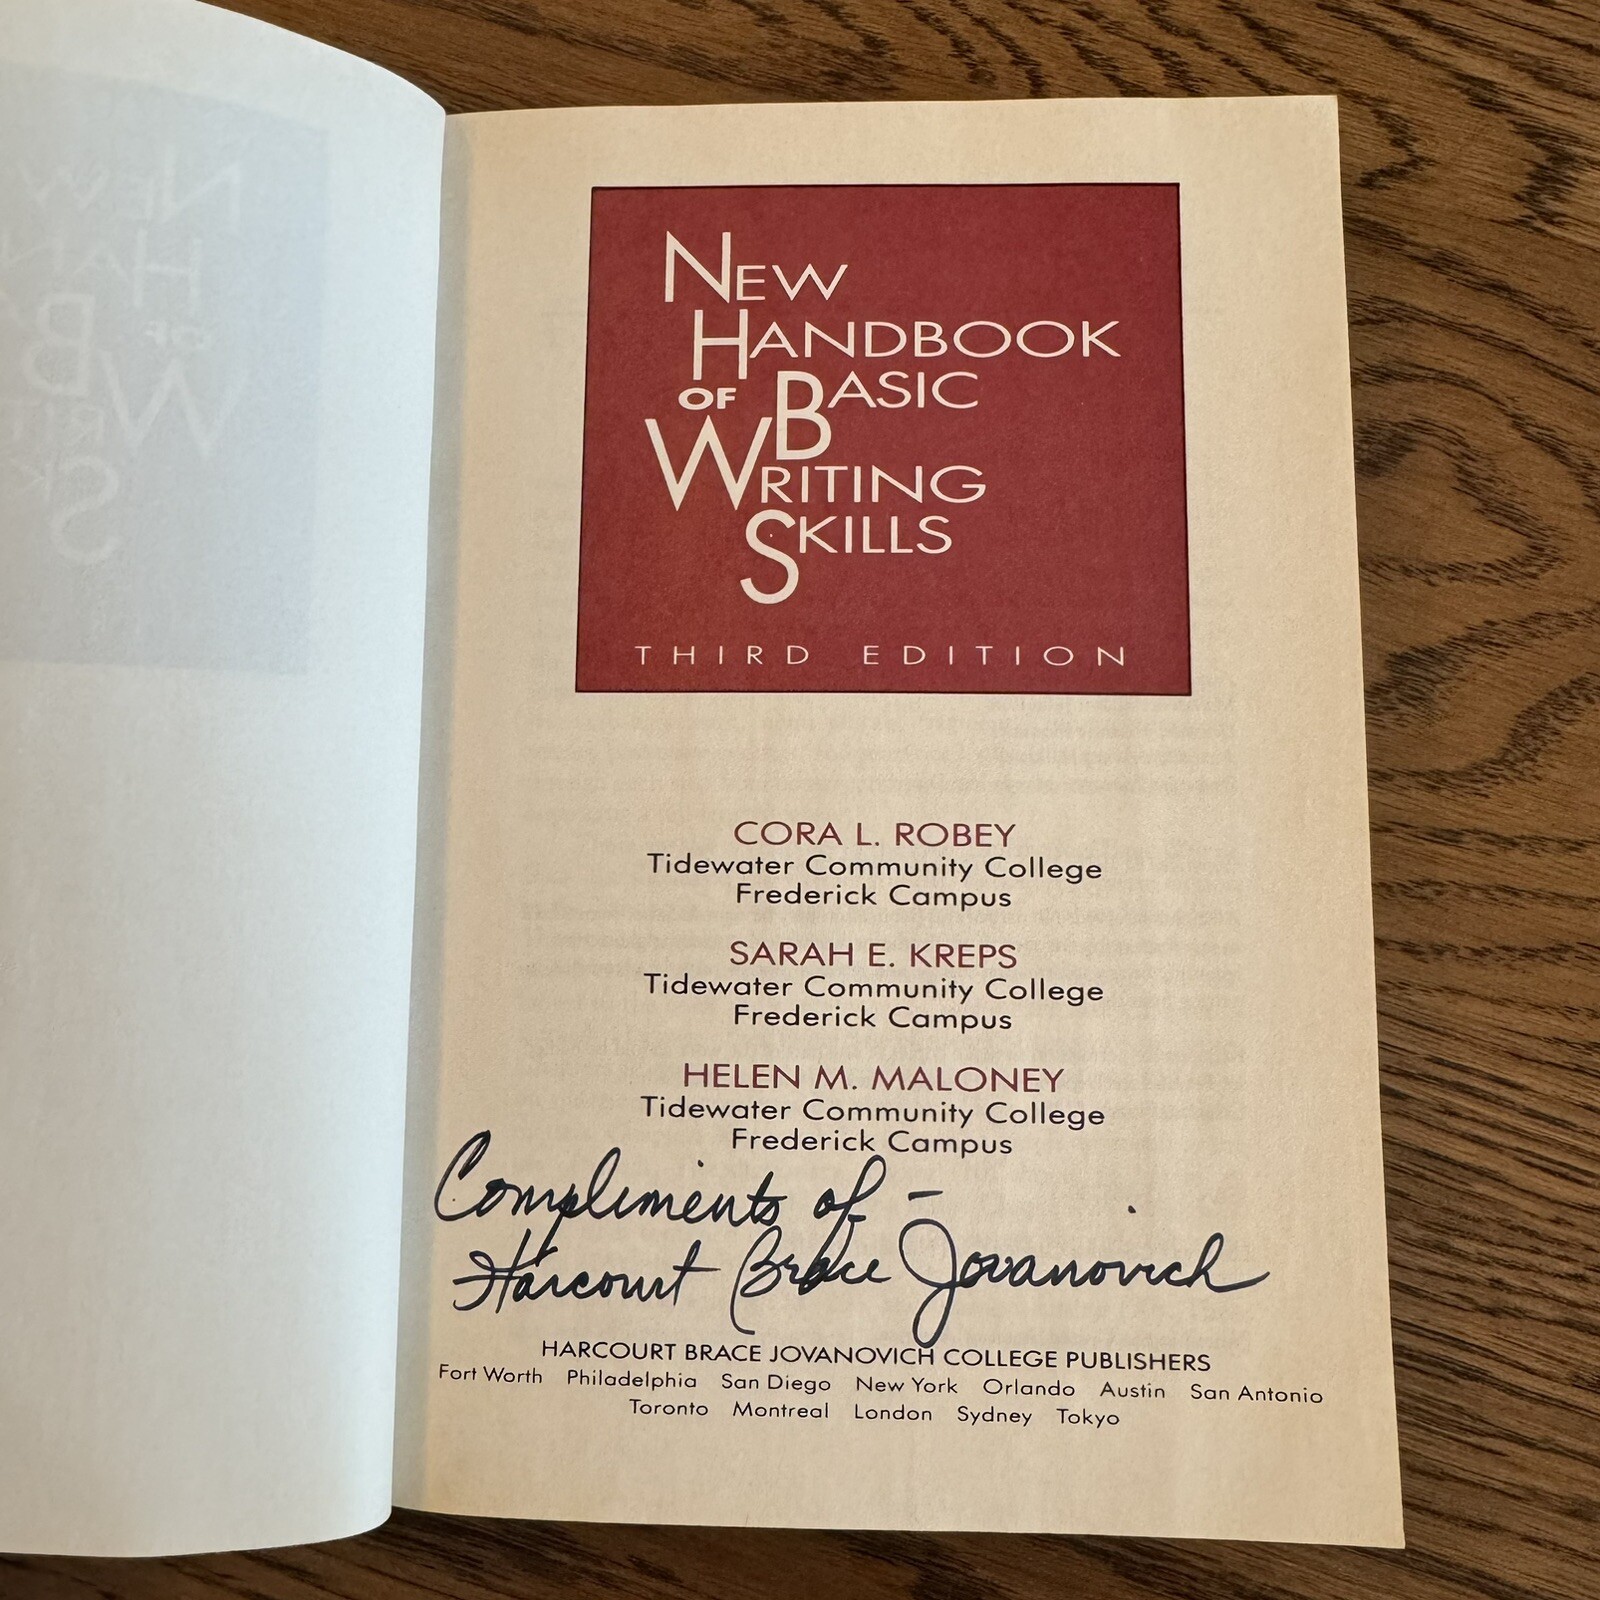 NEW
HANDBOOK
OF BASIC
WRITING
SKILLS
THIRD EDITION
CORA L. ROBEY
Tidewater Community College
Frederick Campus
SARAH E. KREPS
Tidewater Community College
Frederick Campus
HELEN M. MALONEY
Tidewater Community College
Frederick Campus
Compliments of –
Harcourt Brace Jovanovich
HARCOURT BRACE JOVANOVICH COLLEGE PUBLISHERS
Fort Worth Philadelphia San Diego New York Orlando Austin San Antonio
Toronto Montreal London Sydney Tokyo